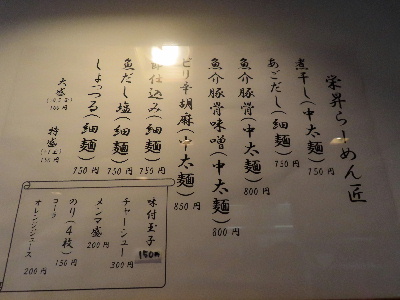 栄昇らーめん匠
煮干し(中太麺) 750円
あごだし(細麺) 750円
魚介豚骨(中太麺) 800円
魚介豚骨味噌(中太麺) 800円
ピリ辛胡麻(中太麺) 850円
仕込み(細麺) 750円
魚だし塩(細麺) 750円
しょっつる(細麺) 750円
大盛
100円
特盛
150円
味付玉子 150円
チャーシュー 300円
メンマ盛 200円
のり(4枚) 150円
コーラ
オレンジジュース 200円